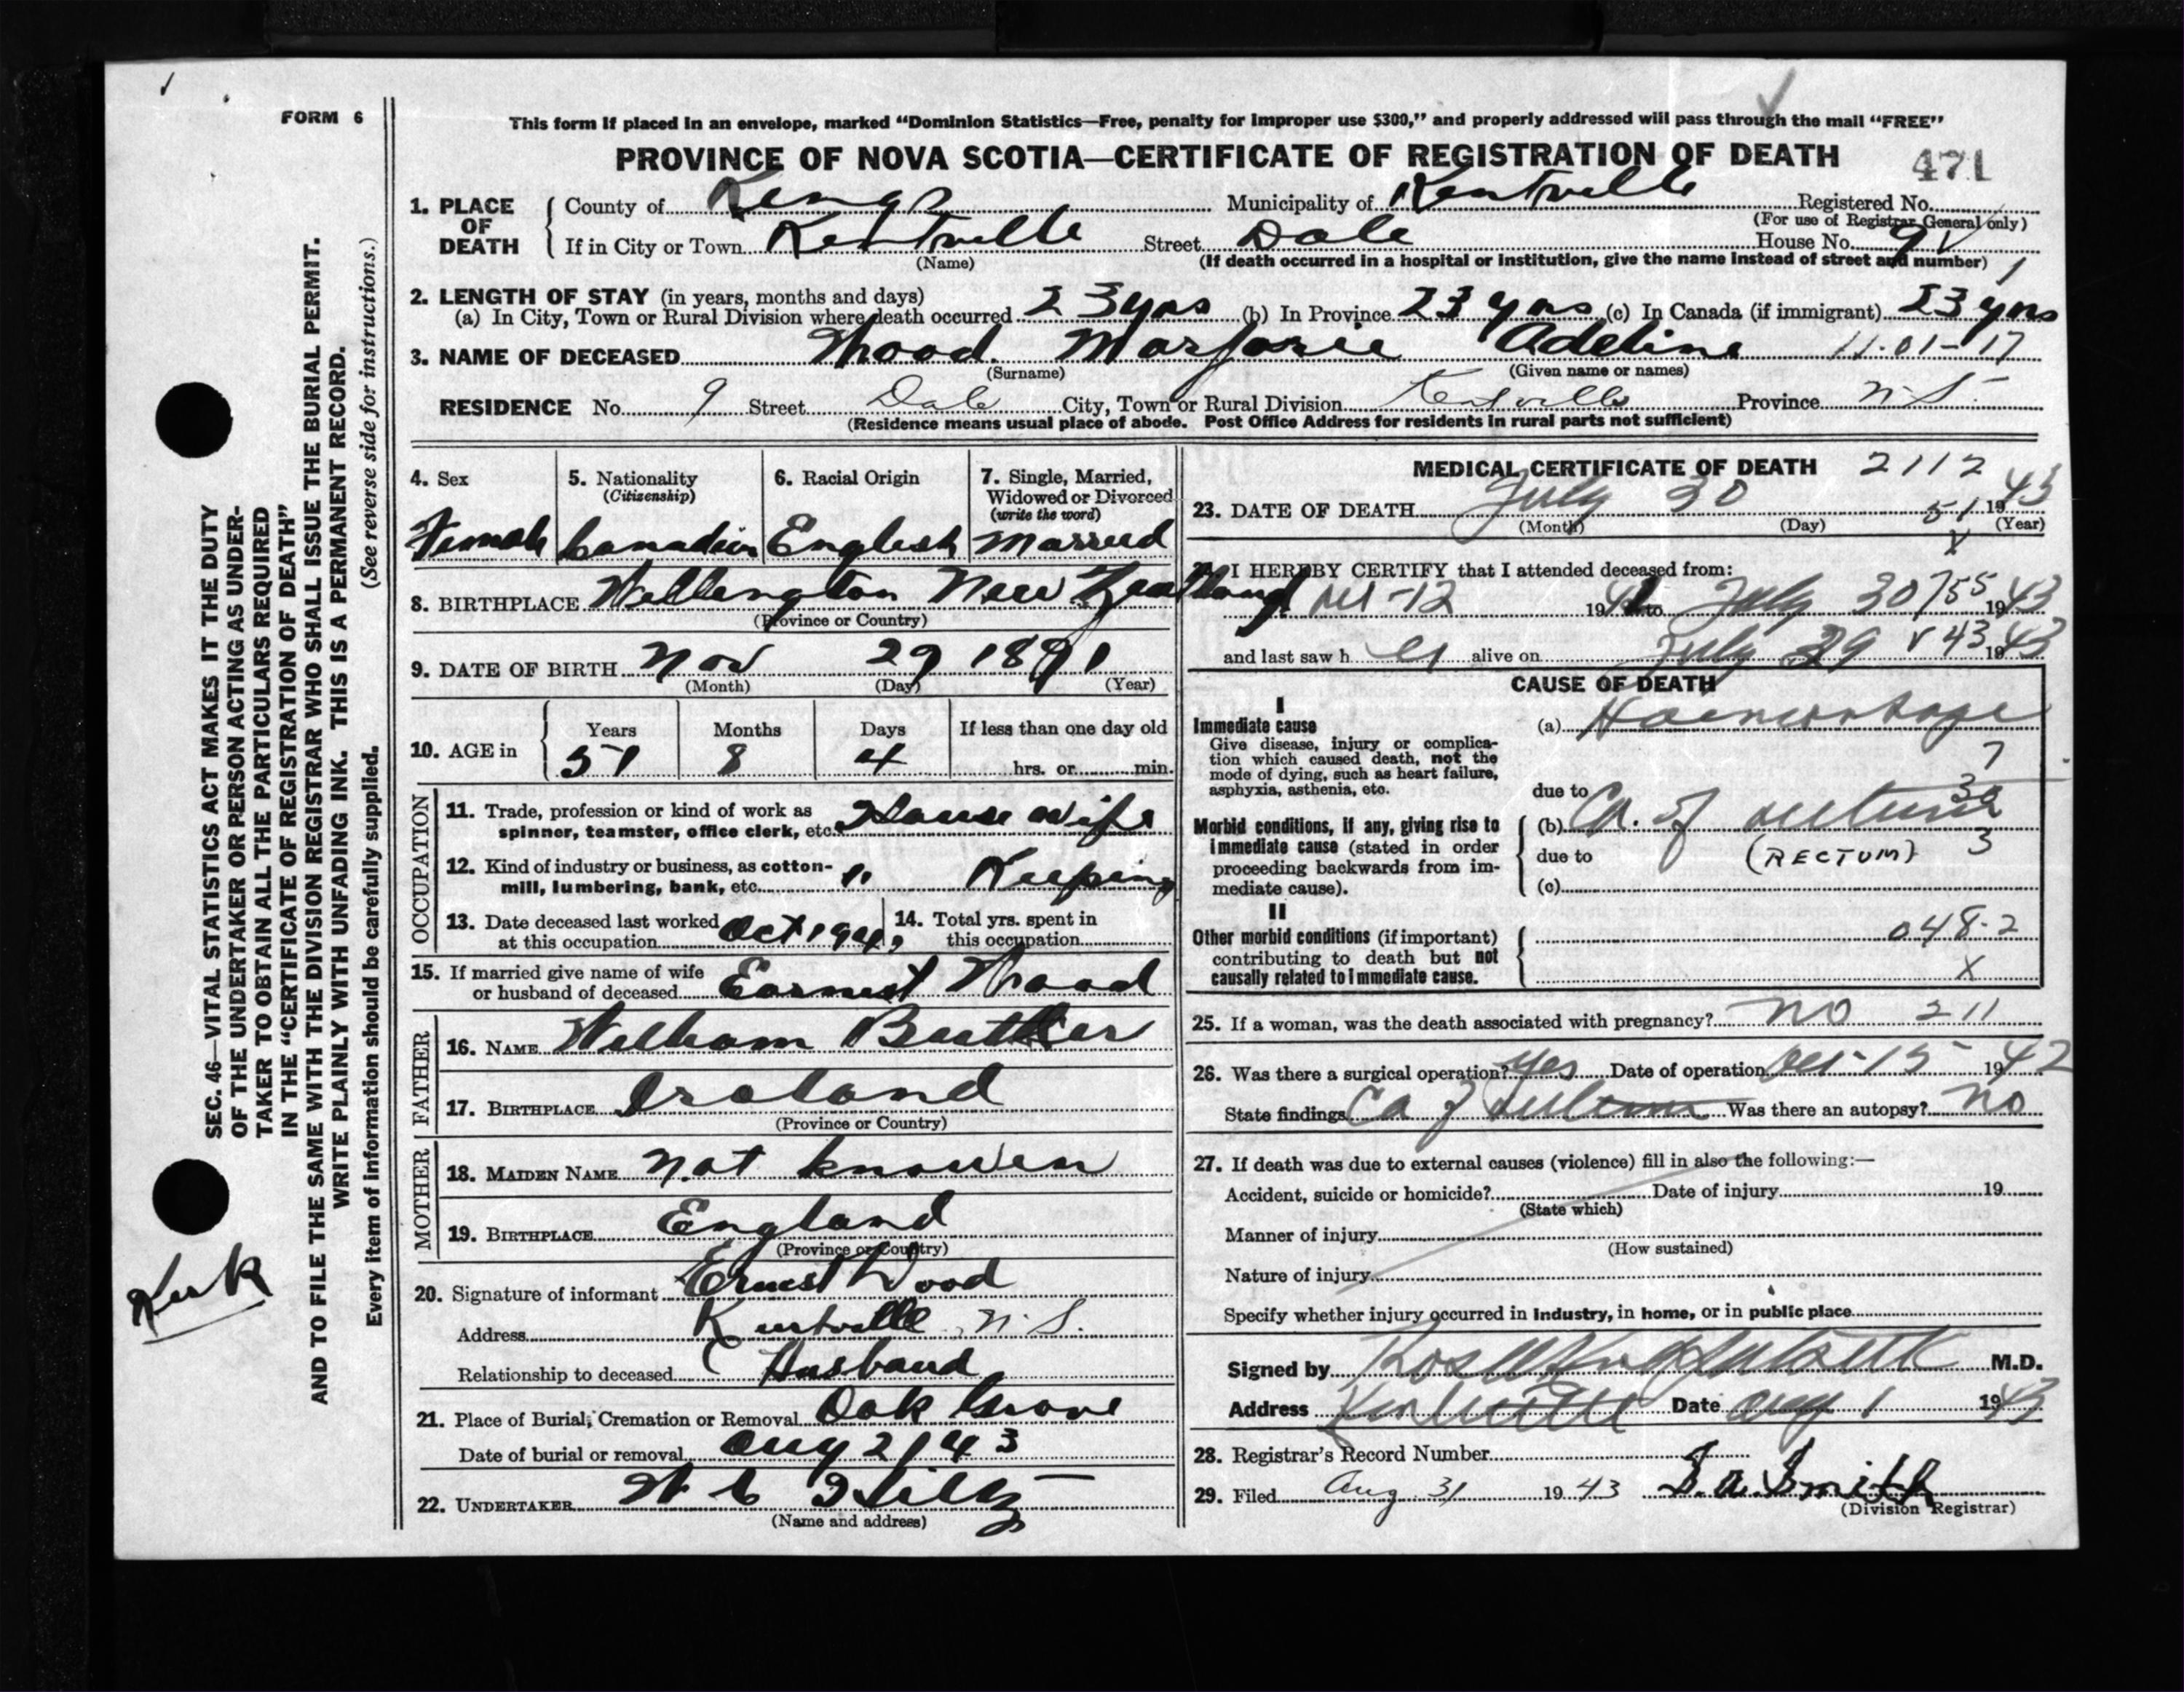 FORM 6
This form if placed in an envelope, marked “Dominion Statistics—Free, penalty for improper use $300,” and properly addressed will pass through the mail “FREE”
PROVINCE OF NOVA SCOTIA—CERTIFICATE OF REGISTRATION OF DEATH 471
1. PLACE OF DEATH County of Kings Municipality of Kentville Registered No.
(For use of Registrar General only)
If in City or Town Kentville Street Dale House No. 9
(Name) (If death occurred in a hospital or institution, give the name instead of street and number)
2. LENGTH OF STAY (in years, months and days)
(a) In City, Town or Rural Division where death occurred 23 yrs (b) In Province 23 yrs (c) In Canada (if immigrant) 23 yrs
3. NAME OF DECEASED Wood Marjorie Adeline 11-01-17
(Surname) (Given name or names)
RESIDENCE No. 9 Street Dale City, Town or Rural Division Kentville Province N.S.
(Residence means usual place of abode. Post Office Address for residents in rural parts not sufficient)
4. Sex 5. Nationality (Citizenship) 6. Racial Origin 7. Single, Married, Widowed or Divorced (write the word)
Female Canadian English Married
8. BIRTHPLACE Wellington New Zealand
(Province or Country)
9. DATE OF BIRTH Nov 29 1891
(Month) (Day) (Year)
10. AGE in Years Months Days If less than one day old
51 8 4 hrs. or min.
OCCUPATION
11. Trade, profession or kind of work as spinner, teamster, office clerk, etc. House wife
12. Kind of industry or business, as cotton-mill, lumbering, bank, etc. " Keeping
13. Date deceased last worked at this occupation Oct 194
14. Total yrs. spent in this occupation
15. If married give name of wife or husband of deceased Earnest Wood
FATHER
16. NAME William Butler
17. BIRTHPLACE Ireland
(Province or Country)
MOTHER
18. MAIDEN NAME not knowen
19. BIRTHPLACE England
(Province or Country)
20. Signature of informant Ernest Wood
Address Kentville N.S.
Relationship to deceased Husband
21. Place of Burial, Cremation or Removal Oak Grove
Date of burial or removal Aug 2/43
22. UNDERTAKER W C
(Name and address)
MEDICAL CERTIFICATE OF DEATH 2112
23. DATE OF DEATH July 30 51 1943
(Month) (Day) (Year)
24. I HEREBY CERTIFY that I attended deceased from:
12 1942 to July 30 755 1943
and last saw h er alive on July 29 43 1943
CAUSE OF DEATH
I
Immediate cause (a) Haemorrhage
Give disease, injury or complication which caused death, not the mode of dying, such as heart failure, asphyxia, asthenia, etc.
7
due to 30
Morbid conditions, if any, giving rise to immediate cause (stated in order proceeding backwards from immediate cause).
(b) Ca. of rectum
due to (RECTUM) 3
(c)
II
Other morbid conditions (if important) contributing to death but not causally related to immediate cause.
048-2
X
25. If a woman, was the death associated with pregnancy? no 211
26. Was there a surgical operation? yes Date of operation 15 1942
State findings Ca of rectum Was there an autopsy? no
27. If death was due to external causes (violence) fill in also the following:—
Accident, suicide or homicide? Date of injury 19
(State which)
Manner of injury
(How sustained)
Nature of injury
Specify whether injury occurred in industry, in home, or in public place
Signed by M.D.
Address Kentville Date Aug 1 1943
28. Registrar’s Record Number
29. Filed Aug. 31 1943 Smith
(Division Registrar)
SEC. 46—VITAL STATISTICS ACT MAKES IT THE DUTY
OF THE UNDERTAKER OR PERSON ACTING AS UNDER-
TAKER TO OBTAIN ALL THE PARTICULARS REQUIRED
IN THE “CERTIFICATE OF REGISTRATION OF DEATH”
AND TO FILE THE SAME WITH THE DIVISION REGISTRAR WHO SHALL ISSUE THE BURIAL PERMIT.
WRITE PLAINLY WITH UNFADING INK. THIS IS A PERMANENT RECORD.
(See reverse side for instructions.)
Every item of information should be carefully supplied.